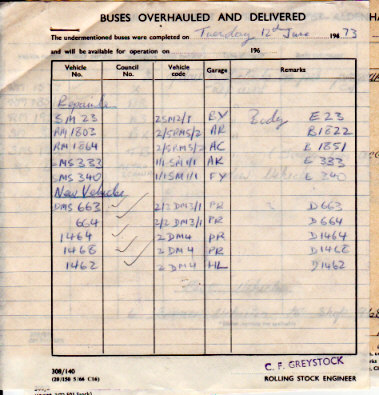 BUSES OVERHAULED AND DELIVERED
The undermentioned buses were completed on Tuesday 12th June 1973
and will be available for operation on 196
Vehicle No. Council No. Vehicle code Garage Remarks
Repaints
SM 23 2SM2/1 EY Body E 23
RM 1803 2/5RM5/2 AR B1822
RM 1864 2/5RM5/2 AC B 1851
SMS 333 1/1SM1/1 AK E 333
SMS 340 1/1SM1/1 FY E 340
New Vehicles
DMS 663 ✓ 2/2 DM3/1 PR D663
664 ✓ 2/2 DM3/1 PR D664
1464 ✓ 2 DM4 PR D1464
1468 ✓ 2 DM4 PR D1468
1462 ✓ 2 DM4 HL D1462
308/140
C. F. GREYSTOCK
ROLLING STOCK ENGINEER